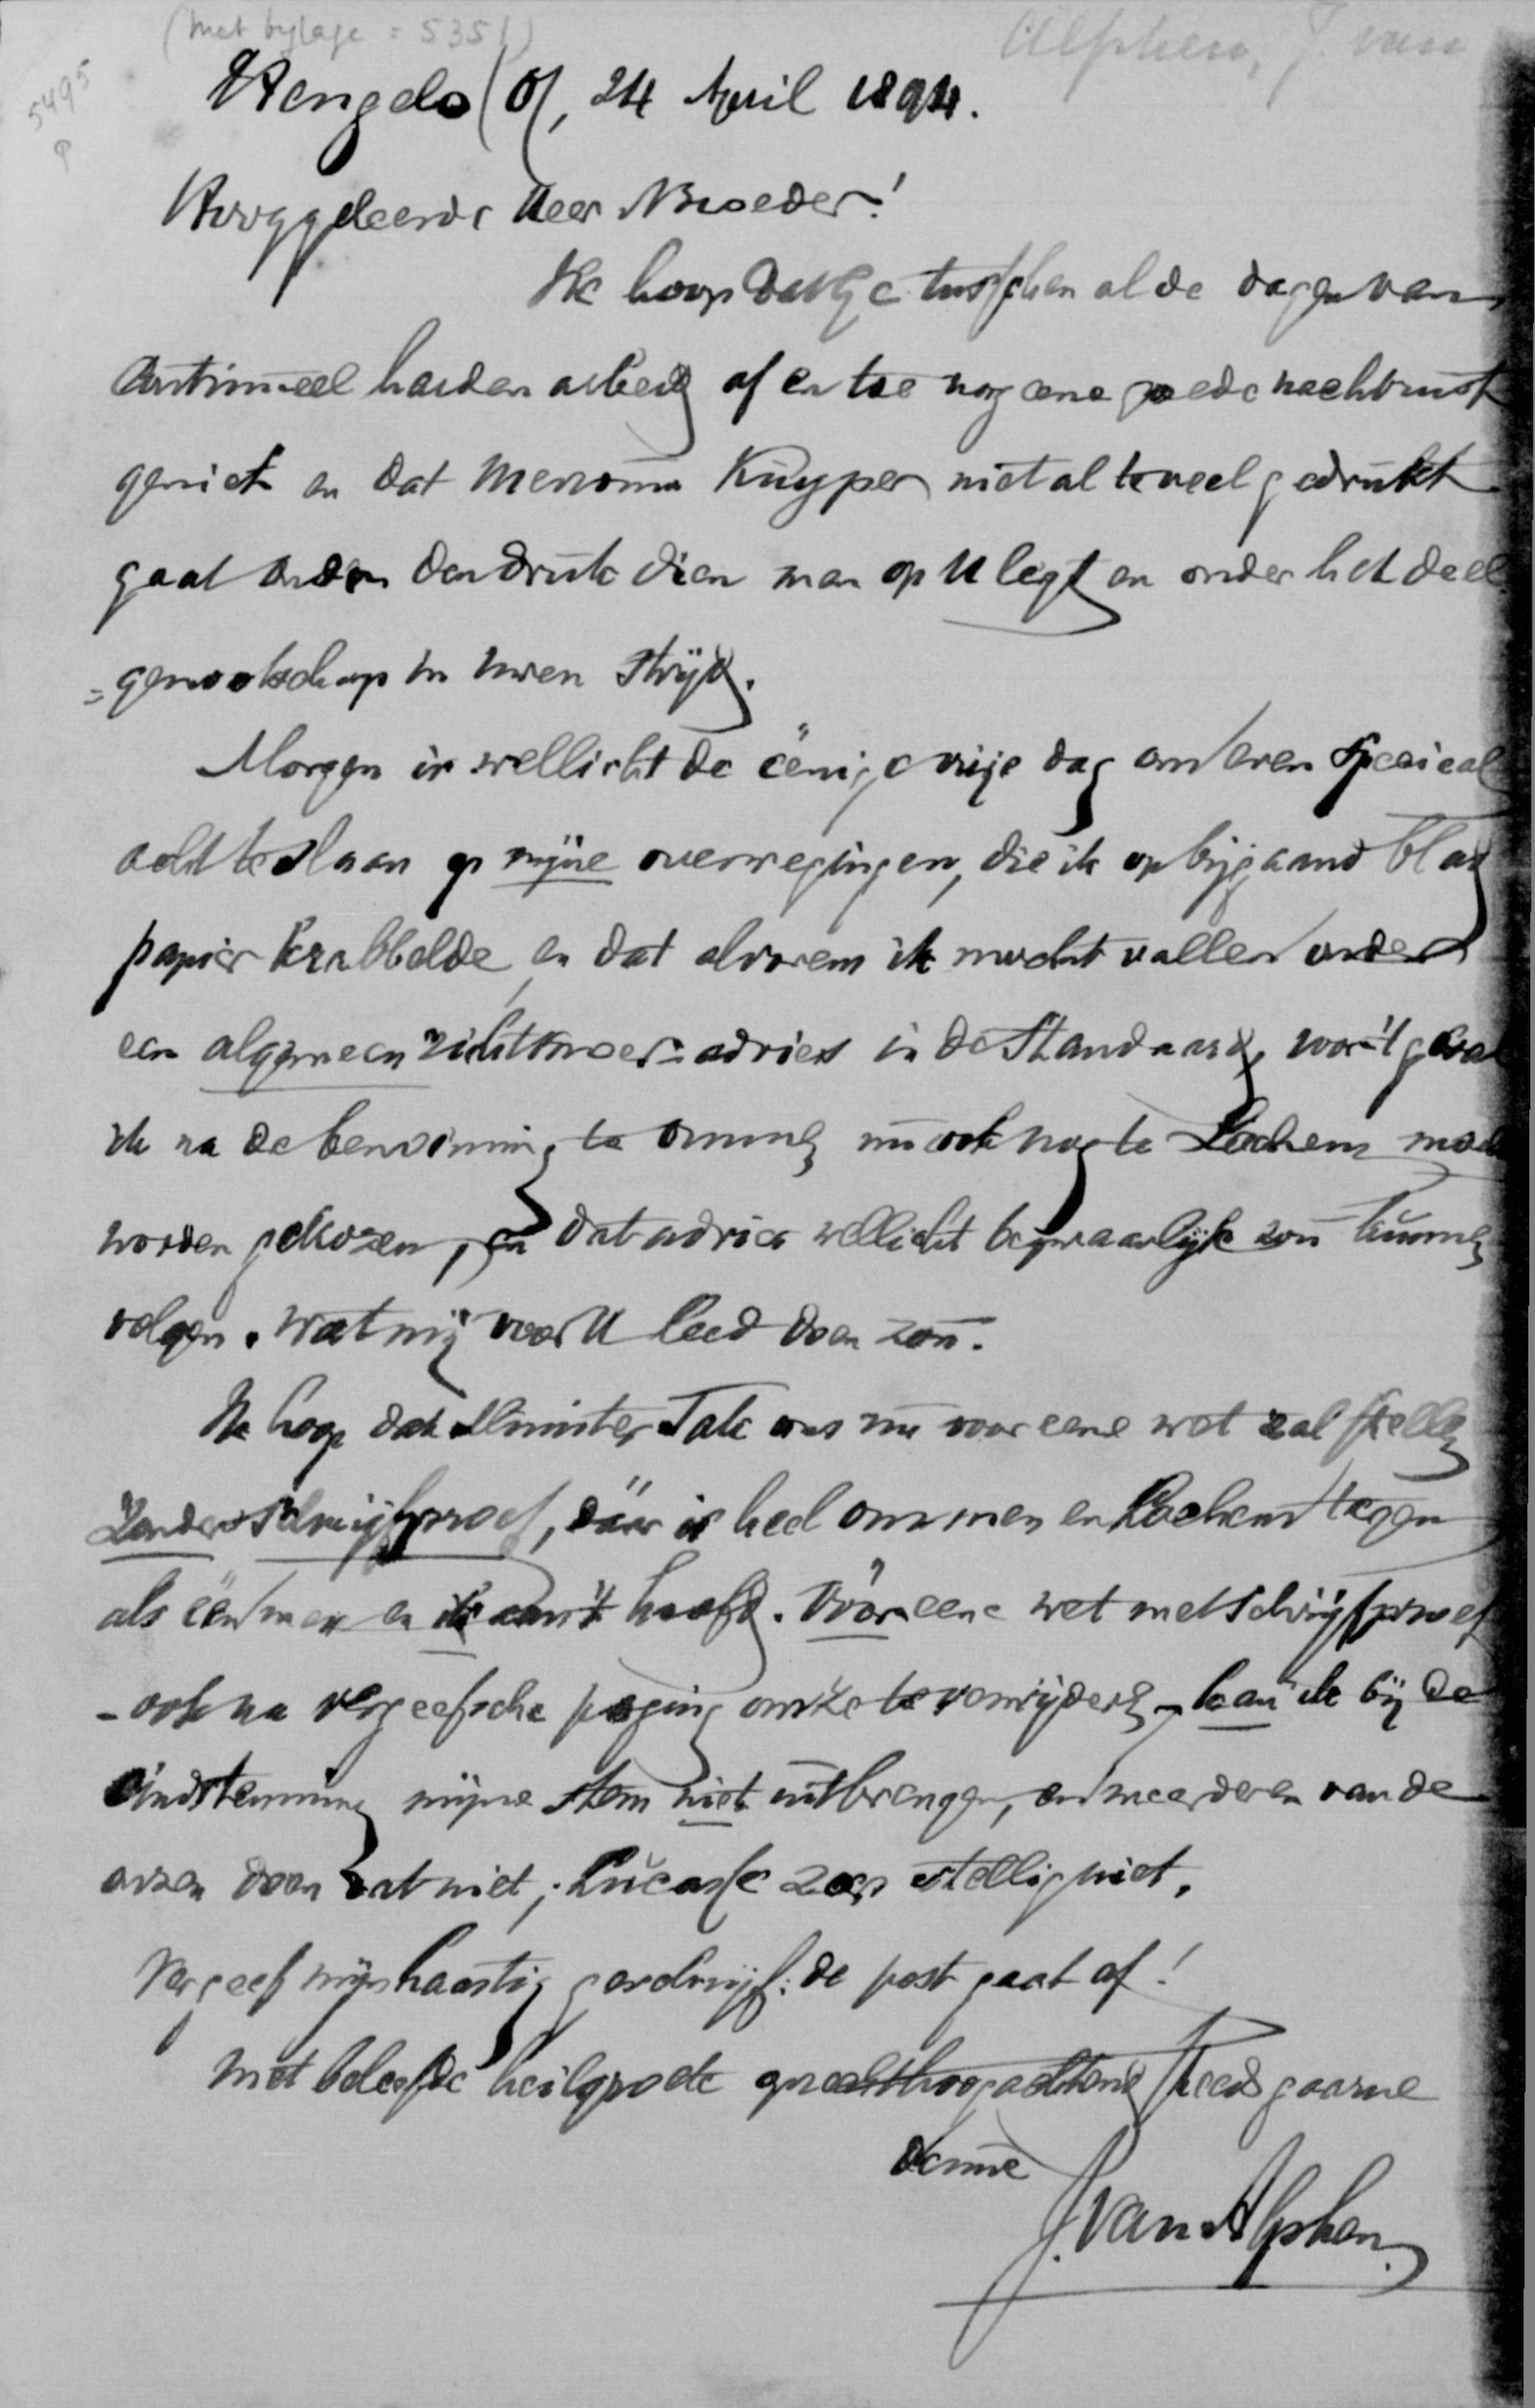 (met bylage = 5351)
Alphen, J. van
5495
Hengelo (O), 24 April 1894.
Hooggeleerde Heer Broeder!
Ik hoop dat Ge tusschen al de dagen van
continueel harden arbeid af en toe nog eene goede nachtrust
geniet en dat Mevrouw Kuyper niet al te veel gedrukt
gaat onder den druk dien men op U legt en onder het deel
=genootschap in Uwen strijd.
Morgen is wellicht de éénige vrije dag om even speciaal
acht te slaan op mijne overwegingen, die ik op bijgaand blad
papier krabbelde, en dat alvorens ik mocht vallen onder
een algemeen richtsnoer-advies in de Standaard, voor 't geval
ik na de benoeming te Ommen nu ook nog te Lochem mocht
worden gekozen, en dat advies wellicht bezwaarlijk zou kunnen
volgen. Wat mij voor U leed doen zou.
Ik hoop dat Minister Tak ons nu voor eene wet zal stellen
zonder schrijfproef, dáár is heel Ommen en Lochem tegen
als één man en ik aan 't hoofd. Vóór eene wet met schrijfproef
- ook na vergeefsche poging om ze te verwijderen - kan ik bij de
eindstemming mijne stem niet uitbrengen, en meerderen van de
onzen doen dat niet; Lucasse zeer stellig niet.
Vergeef mijn haastig geschrijf: de post gaat af!
Met beleefde heilgroete hoogachtend steeds gaarne
de Uwe
J. van Alphen.